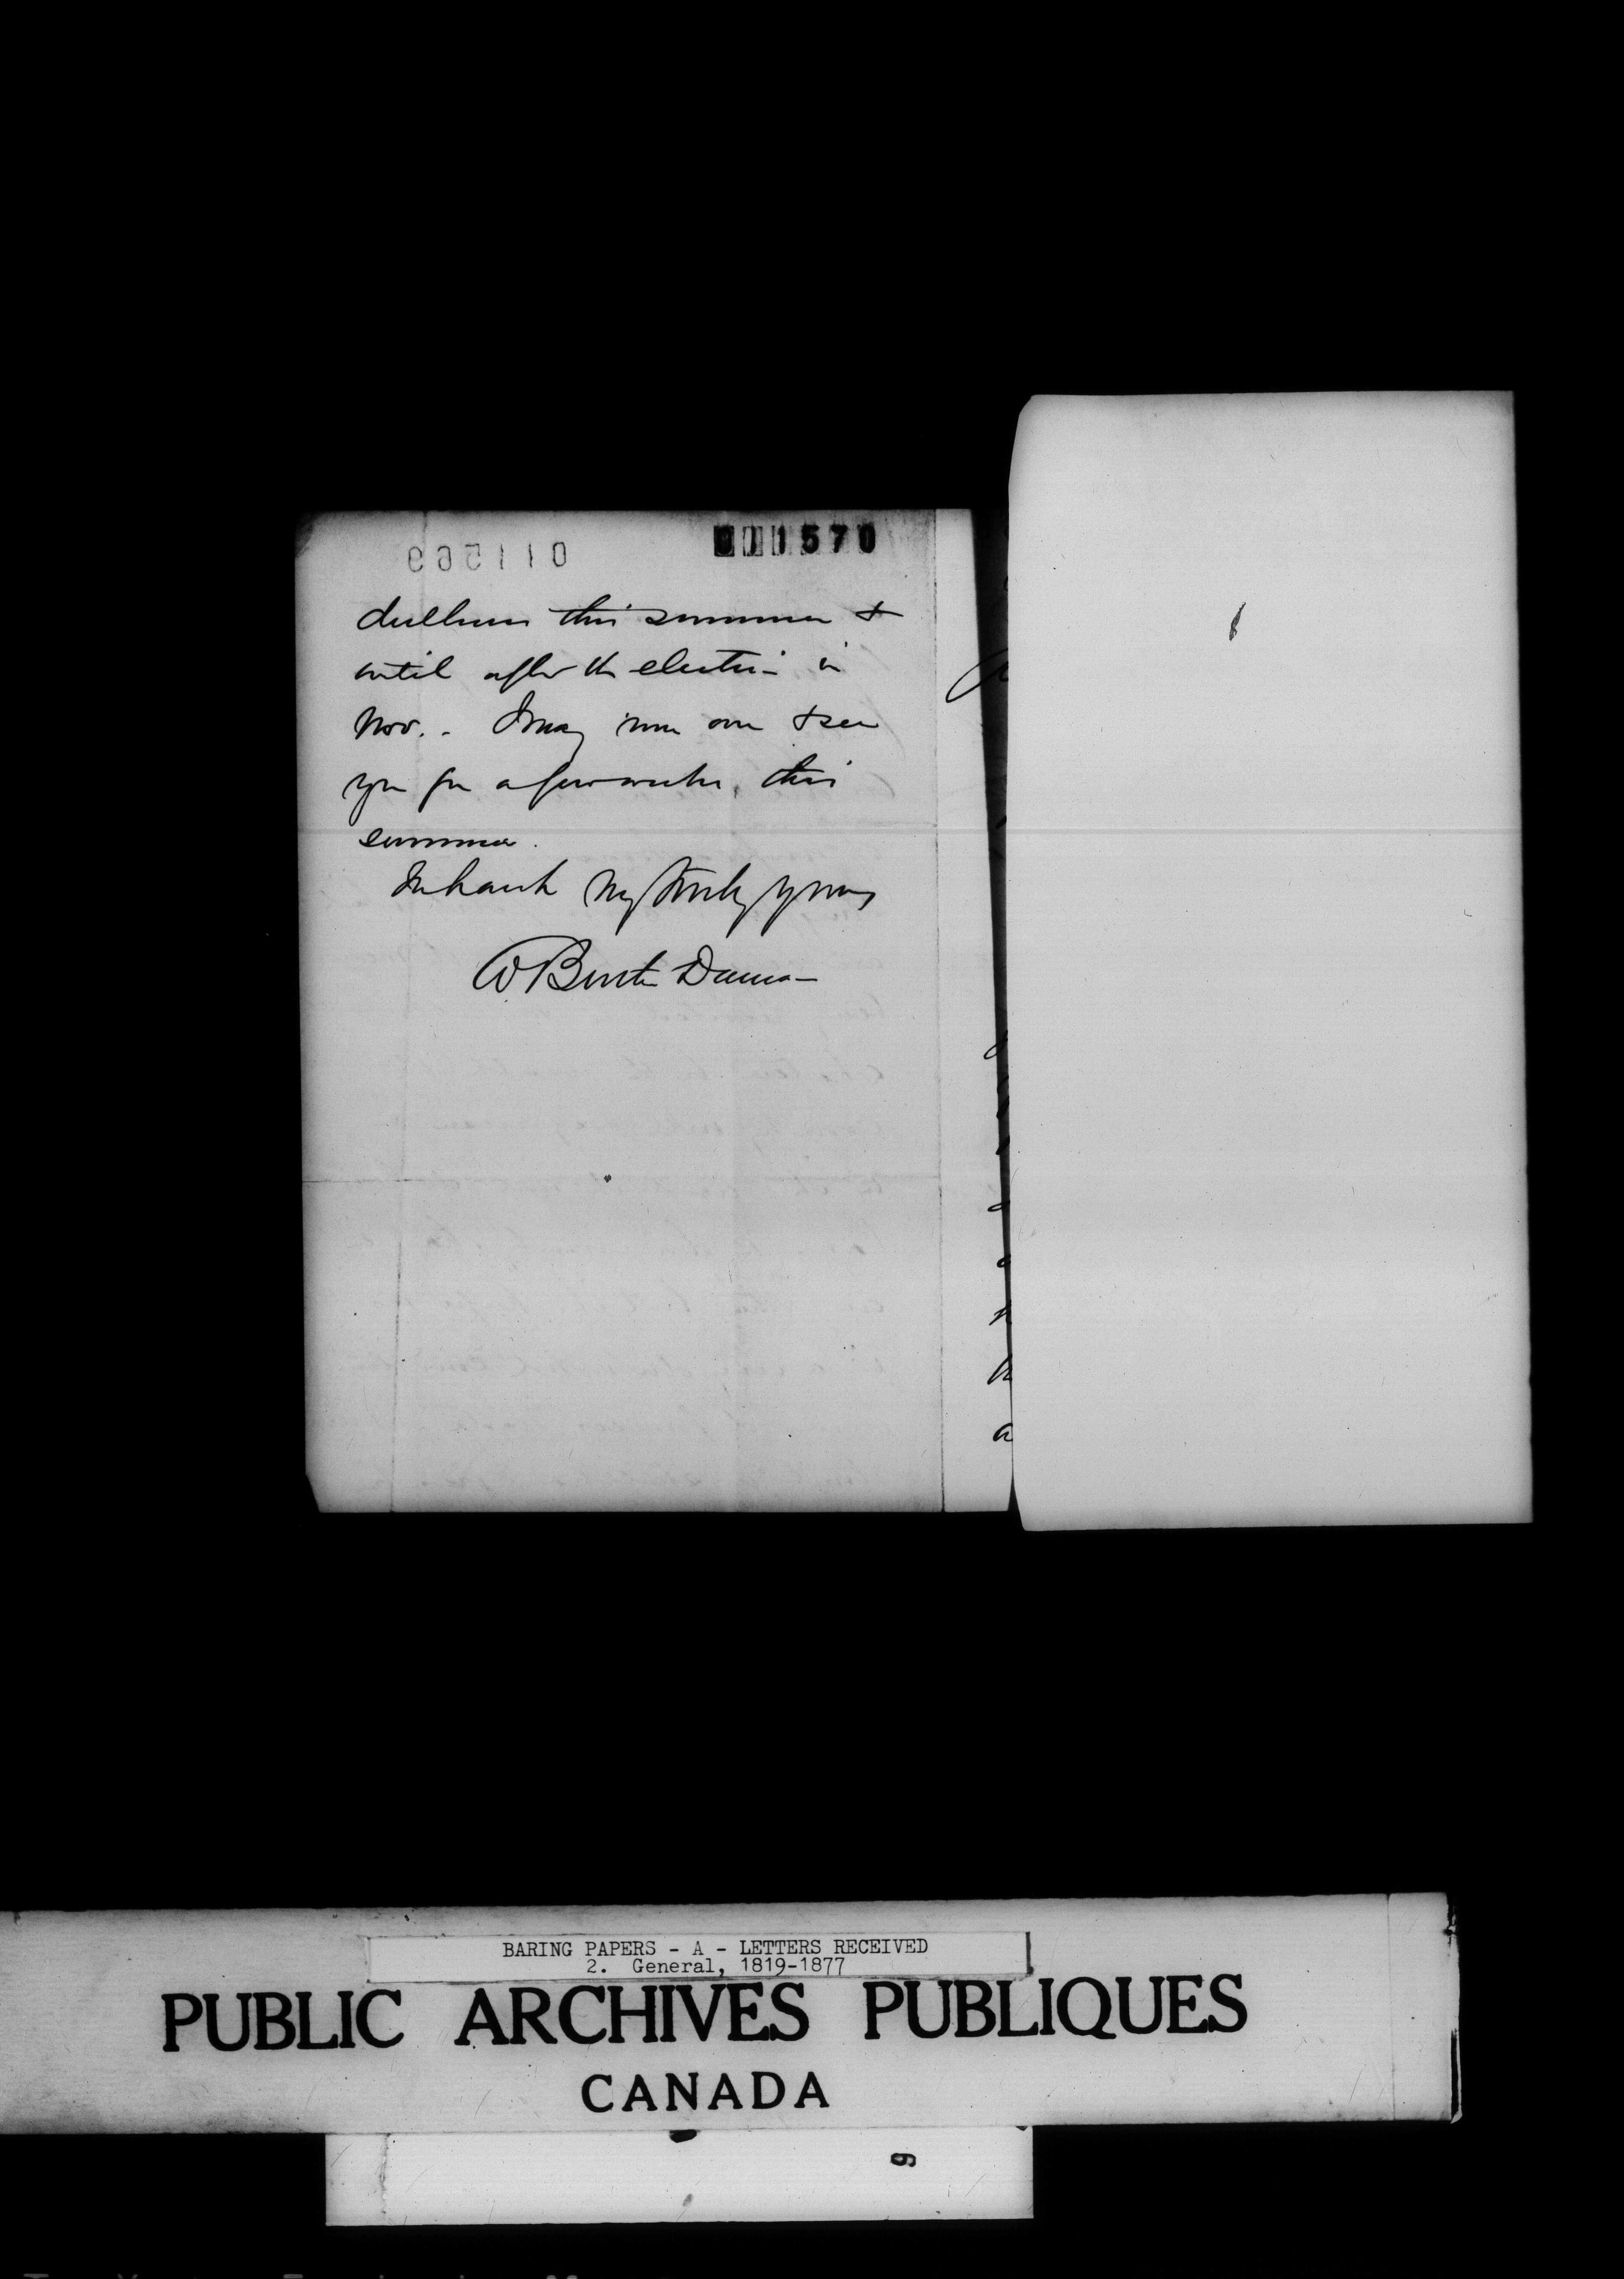 011570
dullness this summer &
until after the election in
Nov. - I may run over & see
you for a few weeks, this
summer.
In haste Very truly yours
W Butler Duncan
BARING PAPERS - A - LETTERS RECEIVED
2. General, 1819-1877
PUBLIC ARCHIVES PUBLIQUES
CANADA